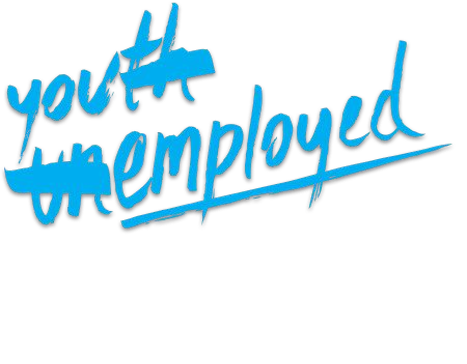 youth
unemployed